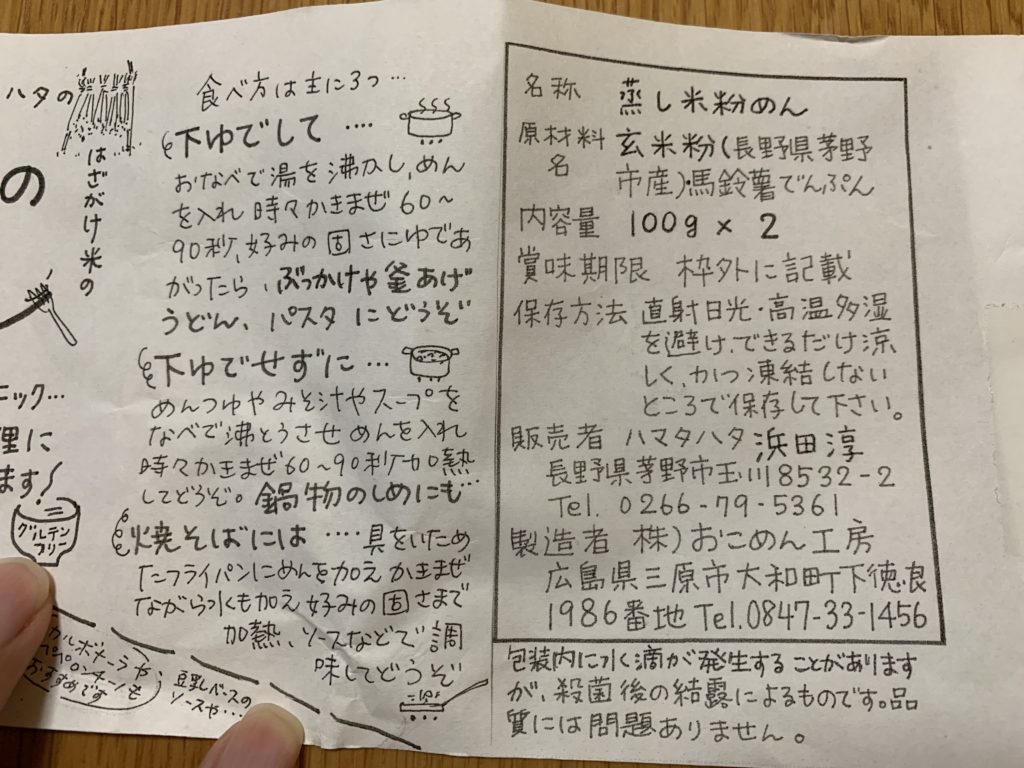 ハタの
はざがけ米の
の
ニック…
理に
ます!
グルテン
フリー
食べ方は主に3つ…
下ゆでして ‥‥
おなべで湯を沸かし、めん
を入れ 時々かきまぜ 60〜
90秒、好みの固さにゆであ
がったら、ぶっかけや釜あげ
うどん、パスタ にどうぞ
下ゆでせずに …
めんつゆやみそ汁やスープを
なべで沸とうさせ めんを入れ
時々かきまぜ60〜90秒加熱
してどうぞ。鍋物のしめにも…
焼そばには ‥‥ 具をいため
たフライパンにめんを加え かきまぜ
ながら水も加え 好みの固さまで
加熱、ソースなどで調
味してどうぞ
カルボナーラや
ペペロンチーノも
おすすめです
豆乳ベースの
ソースや…
名称 蒸し米粉めん
原材料名 玄米粉(長野県茅野
市産)、馬鈴薯でんぷん
内容量 100g × 2
賞味期限 枠外に記載
保存方法 直射日光・高温多湿
を避け、できるだけ涼
しく、かつ凍結しない
ところで保存して下さい。
販売者 ハマタハタ 浜田淳
長野県茅野市玉川8532-2
Tel. 0266-79-5361
製造者 株)おこめん工房
広島県三原市大和町下徳良
1986番地 Tel.0847-33-1456
包装内に水滴が発生することがあります
が、殺菌後の結露によるものです。品
質には問題ありません。